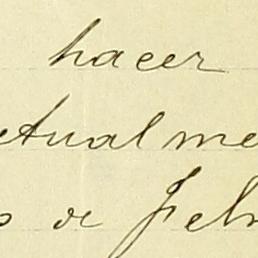 hacer
ctualme
s de Feb